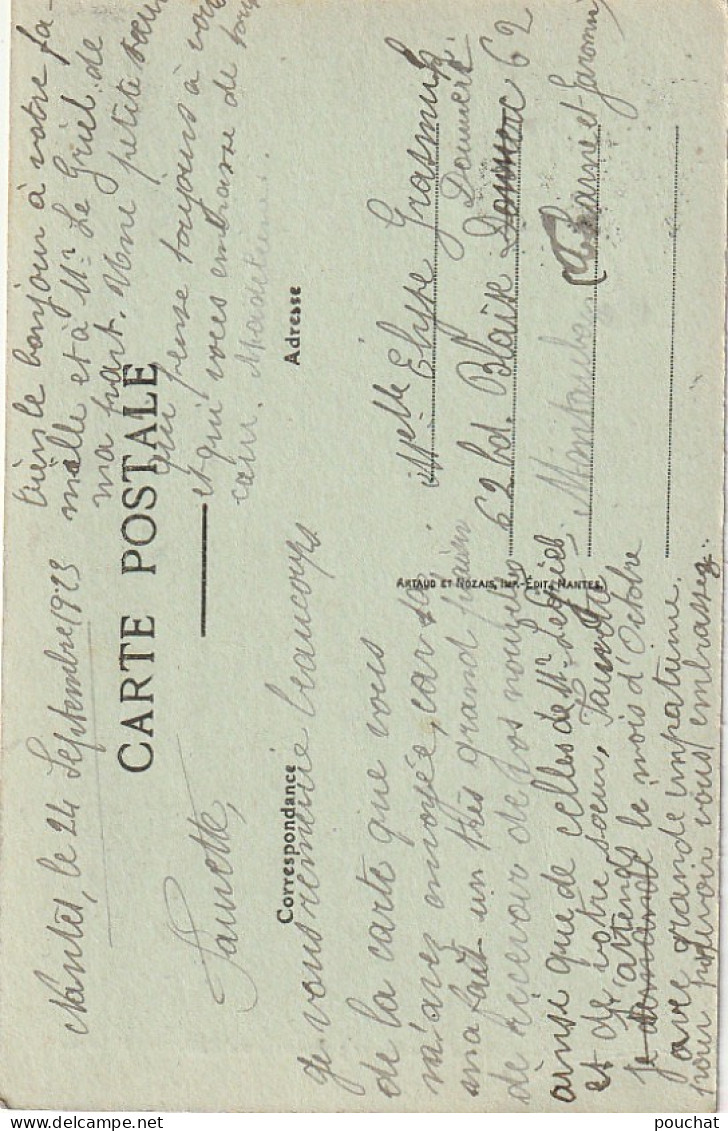 Nantes, le 24 Septembre 1923
CARTE POSTALE
Correspondance
Adresse
je vous remercie beaucoup
de la carte que vous
m'avez envoyée, car
m'a fait un très grand plaisir
de recevoir de vos nouvelles
ainsi que de celles de Mr
et de votre sœur,
j'attends le mois d'Octobre
avec grande impatience.
pour pouvoir vous embrasser.
bien le bonjour à votre fa-
mille et à Mr Le Griel de
ma part. Une petite sœur
qui pense toujours à vous
et qui vous embrasse de tout
cœur.
ARTAUD ET NOZAIS, IMP.-ÉDIT. NANTES.
Melle Elyse
62 bd. Blaise Doumerc 62
Doumerc
Montauban
(Tarn et Garonne)
pouchat